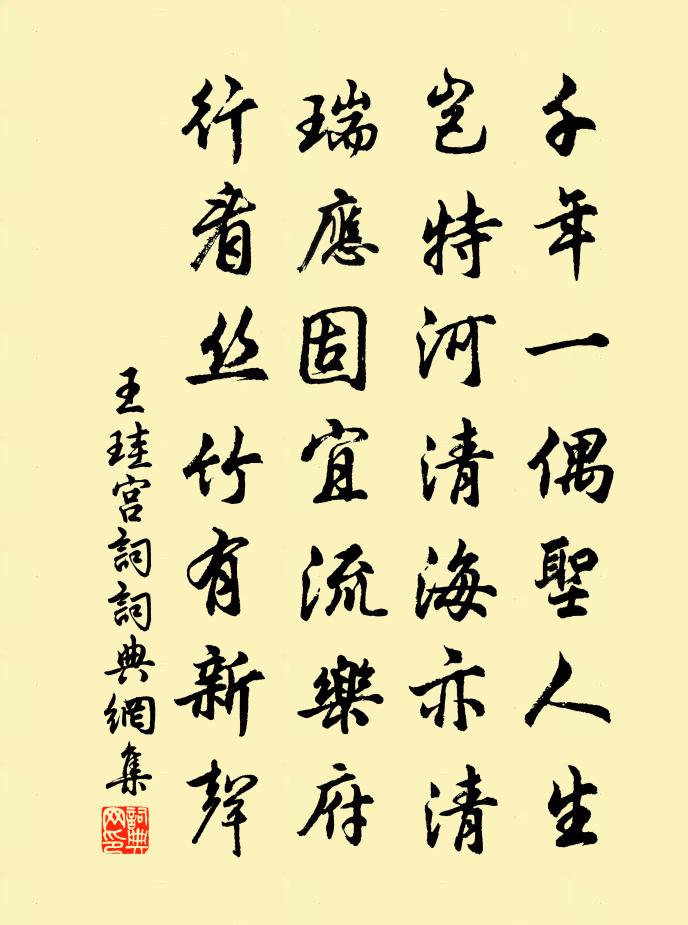 千年一偶聖人生
豈特河清海亦清
瑞應固宜流樂府
行看丝竹有新聲
王珪宮詞詞典網集
詞典网印